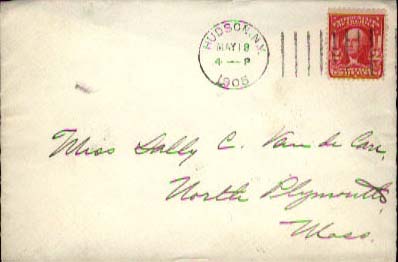 HUDSON, N.Y.
MAY 18
4 — P
1905
2 2
Miss Sally C. Van de Carr,
North Plymouth,
Mass.